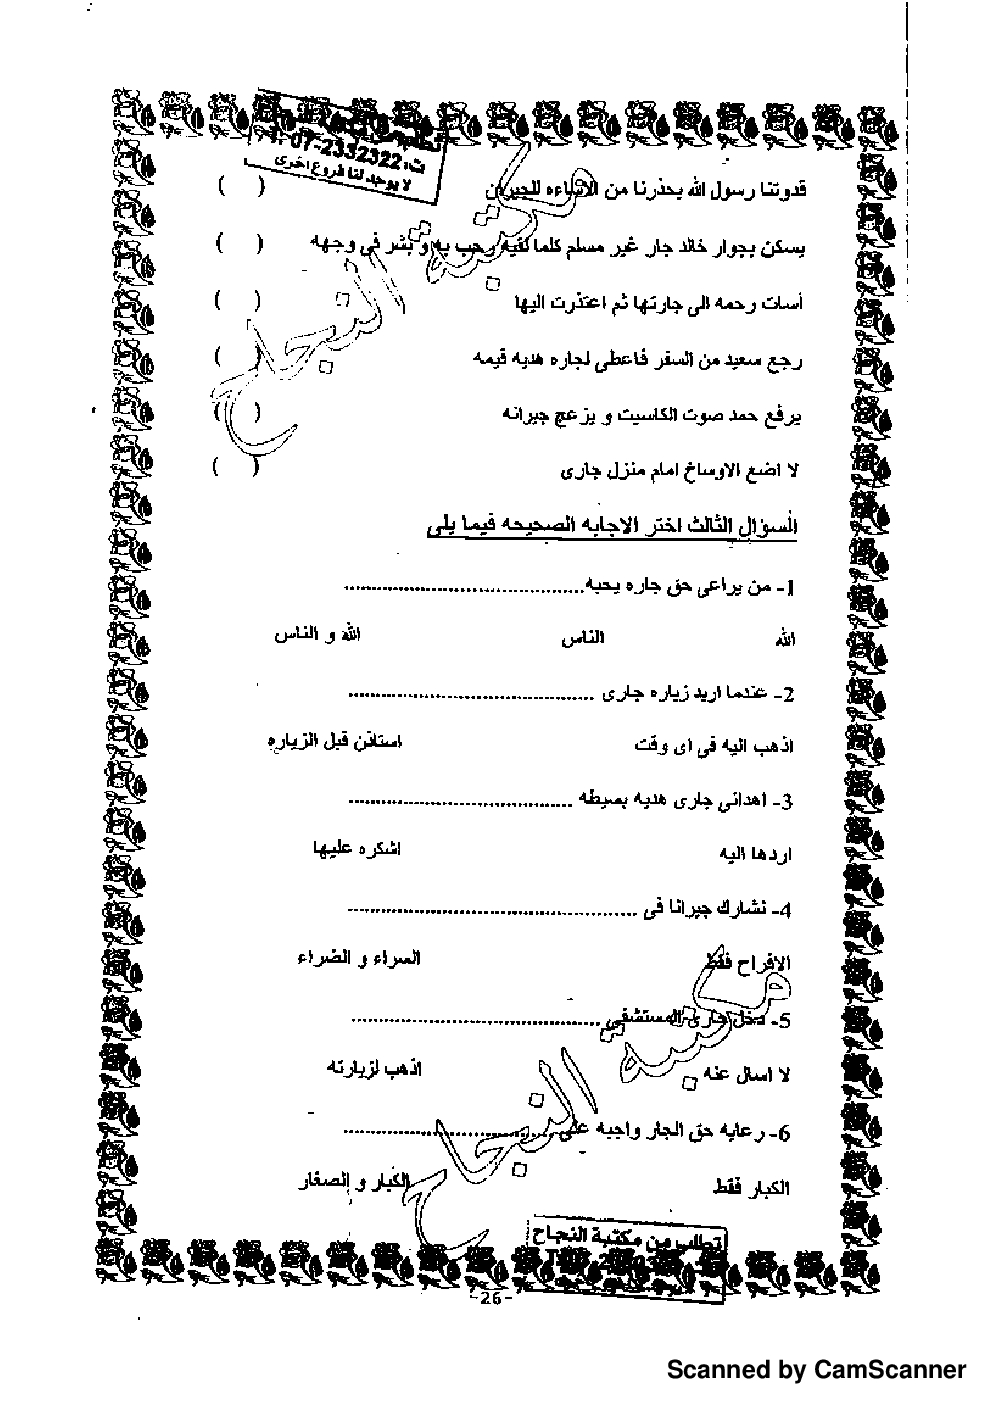 ت: 07-2332322
لا يوجد لنا فروع اخرى
قدوتنا رسول الله يحذرنا من الاساءه للجيران ( )
يسكن بجوار خالد جار غير مسلم كلما لقيه رحب به و بشر فى وجهه ( )
أسات رحمه الى جارتها ثم اعتذرت اليها ( )
رجع سعيد من السفر فاعطى لجاره هديه قيمه ( )
يرفع حمد صوت الكاسيت و يزعج جيرانه ( )
لا اضع الاوساخ امام منزل جارى ( )
السؤال الثالث اختر الاجابه الصحيحه فيما يلى
1- من يراعى حق جاره يحبه ........................................
الله الناس الله و الناس
2- عندما اريد زياره جارى ........................................
اذهب اليه فى اى وقت استاذن قبل الزياره
3- اهدانى جارى هديه بسيطه ........................................
اردها اليه اشكره عليها
4- نشارك جيرانا فى ........................................
الافراح فقط السراء و الضراء
5- دخل جارى المستشفى ........................................
لا اسال عنه اذهب لزيارته
6- رعايه حق الجار واجبه على ........................................
الكبار فقط الكبار و الصغار
مكتبة النجاح
مكتبة النجاح
تطلب من مكتبة النجاح
-26-
Scanned by CamScanner